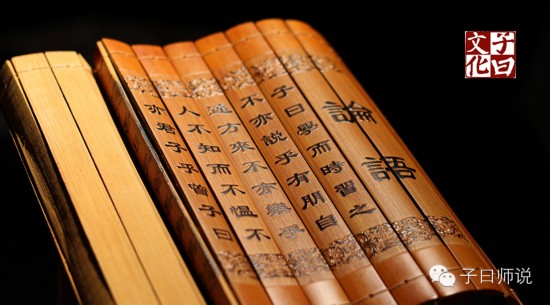 子曰
文化
論語
子曰學而時習之
不亦説乎有朋自
遠方來不亦樂乎
人不知而不愠不
亦君子乎曾子曰
子曰师说